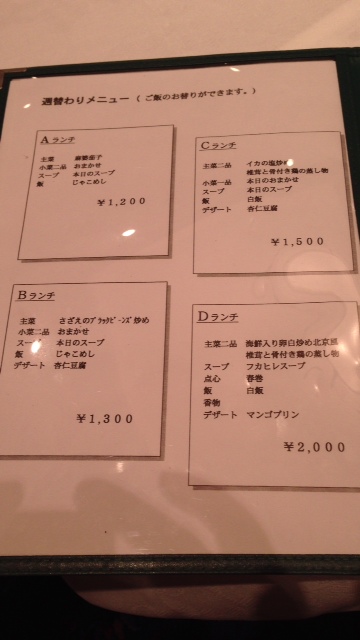 週替わりメニュー（ご飯のお替りができます。）
Aランチ
主菜 麻婆茄子
小菜二品 おまかせ
スープ 本日のスープ
飯 じゃこめし
￥1,200
Bランチ
主菜 さざえのブラックビーンズ炒め
小菜二品 おまかせ
スープ 本日のスープ
飯 じゃこめし
デザート 杏仁豆腐
￥1,300
Cランチ
主菜二品 イカの塩炒め
椎茸と骨付き鶏の蒸し物
小菜一品 本日のおまかせ
スープ 本日のスープ
飯 白飯
デザート 杏仁豆腐
￥1,500
Dランチ
主菜二品 海鮮入り卵白炒め北京風
椎茸と骨付き鶏の蒸し物
スープ フカヒレスープ
点心 春巻
飯 白飯
香物
デザート マンゴプリン
￥2,000